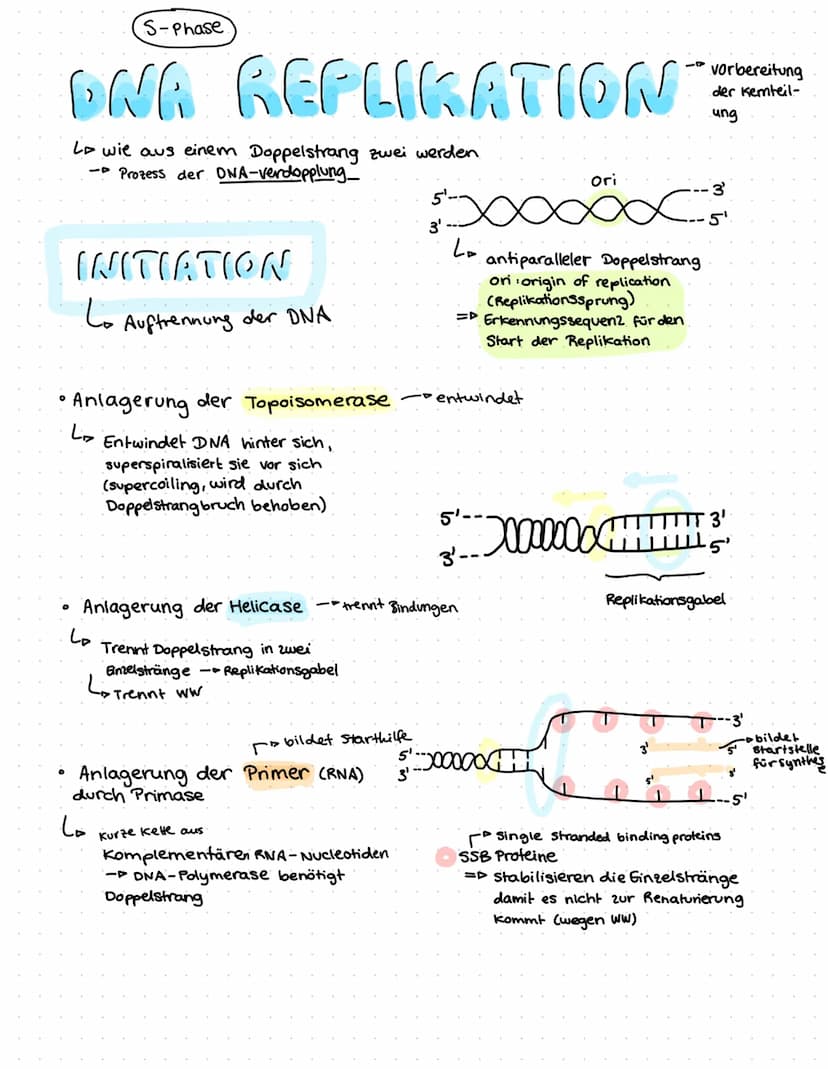 S-Phase
DNA REPLIKATION
→ Vorbereitung
der Kernteil-
ung
↳ wie aus einem Doppelstrang zwei werden
→ Prozess der DNA-verdopplung
ori
5' 3'
3' 5'
INITIATION
↳ Auftrennung der DNA
↳ antiparalleler Doppelstrang
ori : origin of replication
(Replikationssprung)
⇒ Erkennungssequenz für den
Start der Replikation
• Anlagerung der Topoisomerase → entwindet
↳ Entwindet DNA hinter sich,
superspiralisiert sie vor sich
(supercoiling, wird durch
Doppelstrangbruch behoben)
5' 3'
3' 5'
Replikationsgabel
• Anlagerung der Helicase → trennt Bindungen
↳ Trennt Doppelstrang in zwei
Einzelstränge → Replikationsgabel
↳ Trennt WW
→ bildet Starthilfe
• Anlagerung der Primer (RNA)
durch Primase
↳ kurze Kette aus
Komplementären RNA-Nucleotiden
→ DNA-Polymerase benötigt
Doppelstrang
5'
3'
3'
3' 5'
5' 3'
5'
→ bildet
Startstelle
für Synthes
→ Single stranded binding proteins
SSB Proteine
⇒ Stabilisieren die Einzelstränge
damit es nicht zur Renaturierung
kommt (wegen WW)